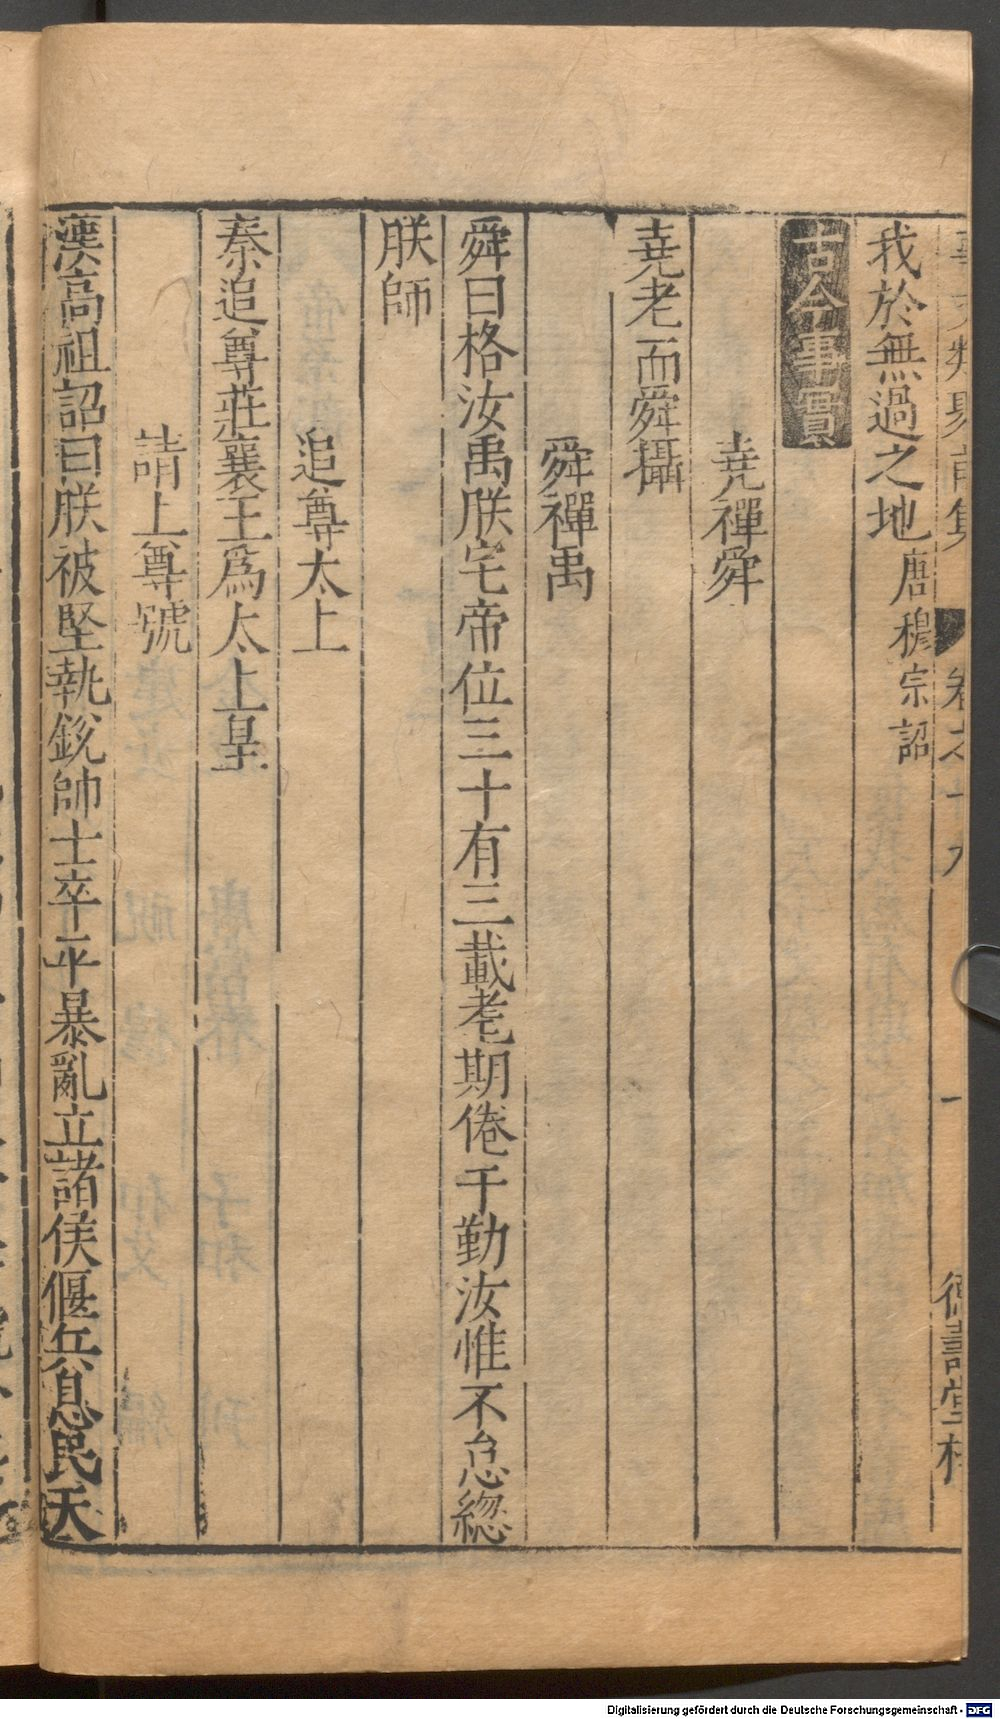 事文類聚前集 卷之十九 一 德壽堂梓
我於無過之地唐穆宗詔
古今事實
堯禪舜
堯老而舜攝
舜禪禹
舜曰格汝禹朕宅帝位三十有三載耄期倦于勤汝惟不怠緫
朕師
追尊太上
秦追尊莊襄王爲太上皇
請上尊號
漢高祖詔曰朕被堅執銳帥士卒平暴亂立諸侯偃兵息民天
Digitalisierung gefördert durch die Deutsche Forschungsgemeinschaft - DFG